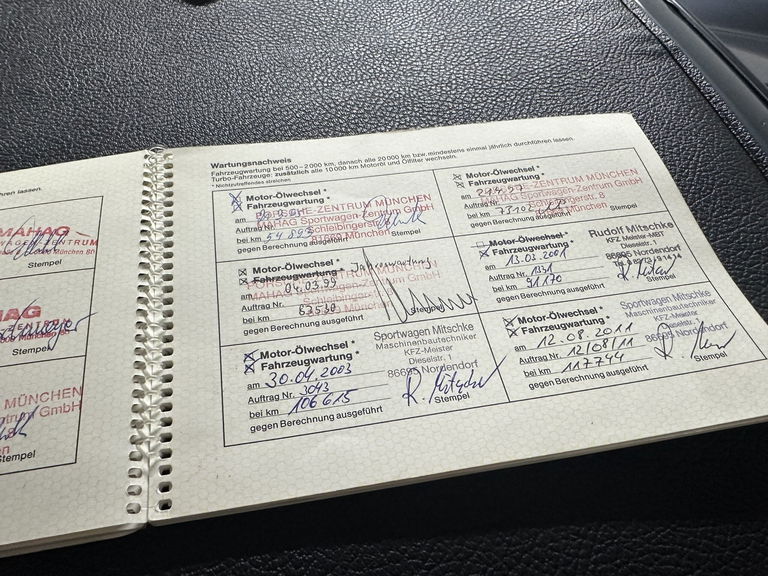 ren lassen.
MAHAG
Stempel
HAG
Stempel
MÜNCHEN
GmbH
Stempel
Wartungsnachweis
Fahrzeugwartung bei 500–2000 km, danach alle 20 000 km bzw. mindestens einmal jährlich durchführen lassen.
Turbo-Fahrzeuge: zusätzlich alle 10 000 km Motoröl und Ölfilter wechseln.
* Nichtzutreffendes streichen
Motor-Ölwechsel *
Fahrzeugwartung *
PORSCHE-ZENTRUM MÜNCHEN
MAHAG Sportwagen-Zentrum GmbH
Schleibingerstr. 8
München
am
Auftrag Nr.
bei km
gegen Berechnung ausgeführt
Stempel
Motor-Ölwechsel *
Fahrzeugwartung *
PORSCHE-ZENTRUM MÜNCHEN
MAHAG Sportwagen-Zentrum GmbH
Schleibingerstr. 8
München
am
Auftrag Nr.
bei km 75102
gegen Berechnung ausgeführt
Stempel
Motor-Ölwechsel *
Fahrzeugwartung * Jahreswartung
MÜNCHEN
MAHAG Sportwagen-Zentrum GmbH
am 04.03.99
Auftrag Nr.
bei km 83530
gegen Berechnung ausgeführt
Stempel
Motor-Ölwechsel *
Fahrzeugwartung *
am 13.03.2001
Auftrag Nr. 1331
bei km 91170
gegen Berechnung ausgeführt
Rudolf Mitschke
KFZ. Meister-MBT
Dieselstr. 1
86695 Nordendorf
Stempel
Motor-Ölwechsel *
Fahrzeugwartung *
am 30.04.2003
Auftrag Nr. 3043
bei km 106615
gegen Berechnung ausgeführt
Sportwagen Mitschke
Maschinenbautechniker
KFZ-Meister
Dieselstr. 1
86695 Nordendorf
R. Mitschke
Stempel
Motor-Ölwechsel *
Fahrzeugwartung *
am 12.08.2011
Auftrag Nr. 12/08/11
bei km 117744
gegen Berechnung ausgeführt
Sportwagen Mitschke
Maschinenbautechniker
KFZ-Meister
Dieselstr. 1
86695 Nordendorf
Stempel